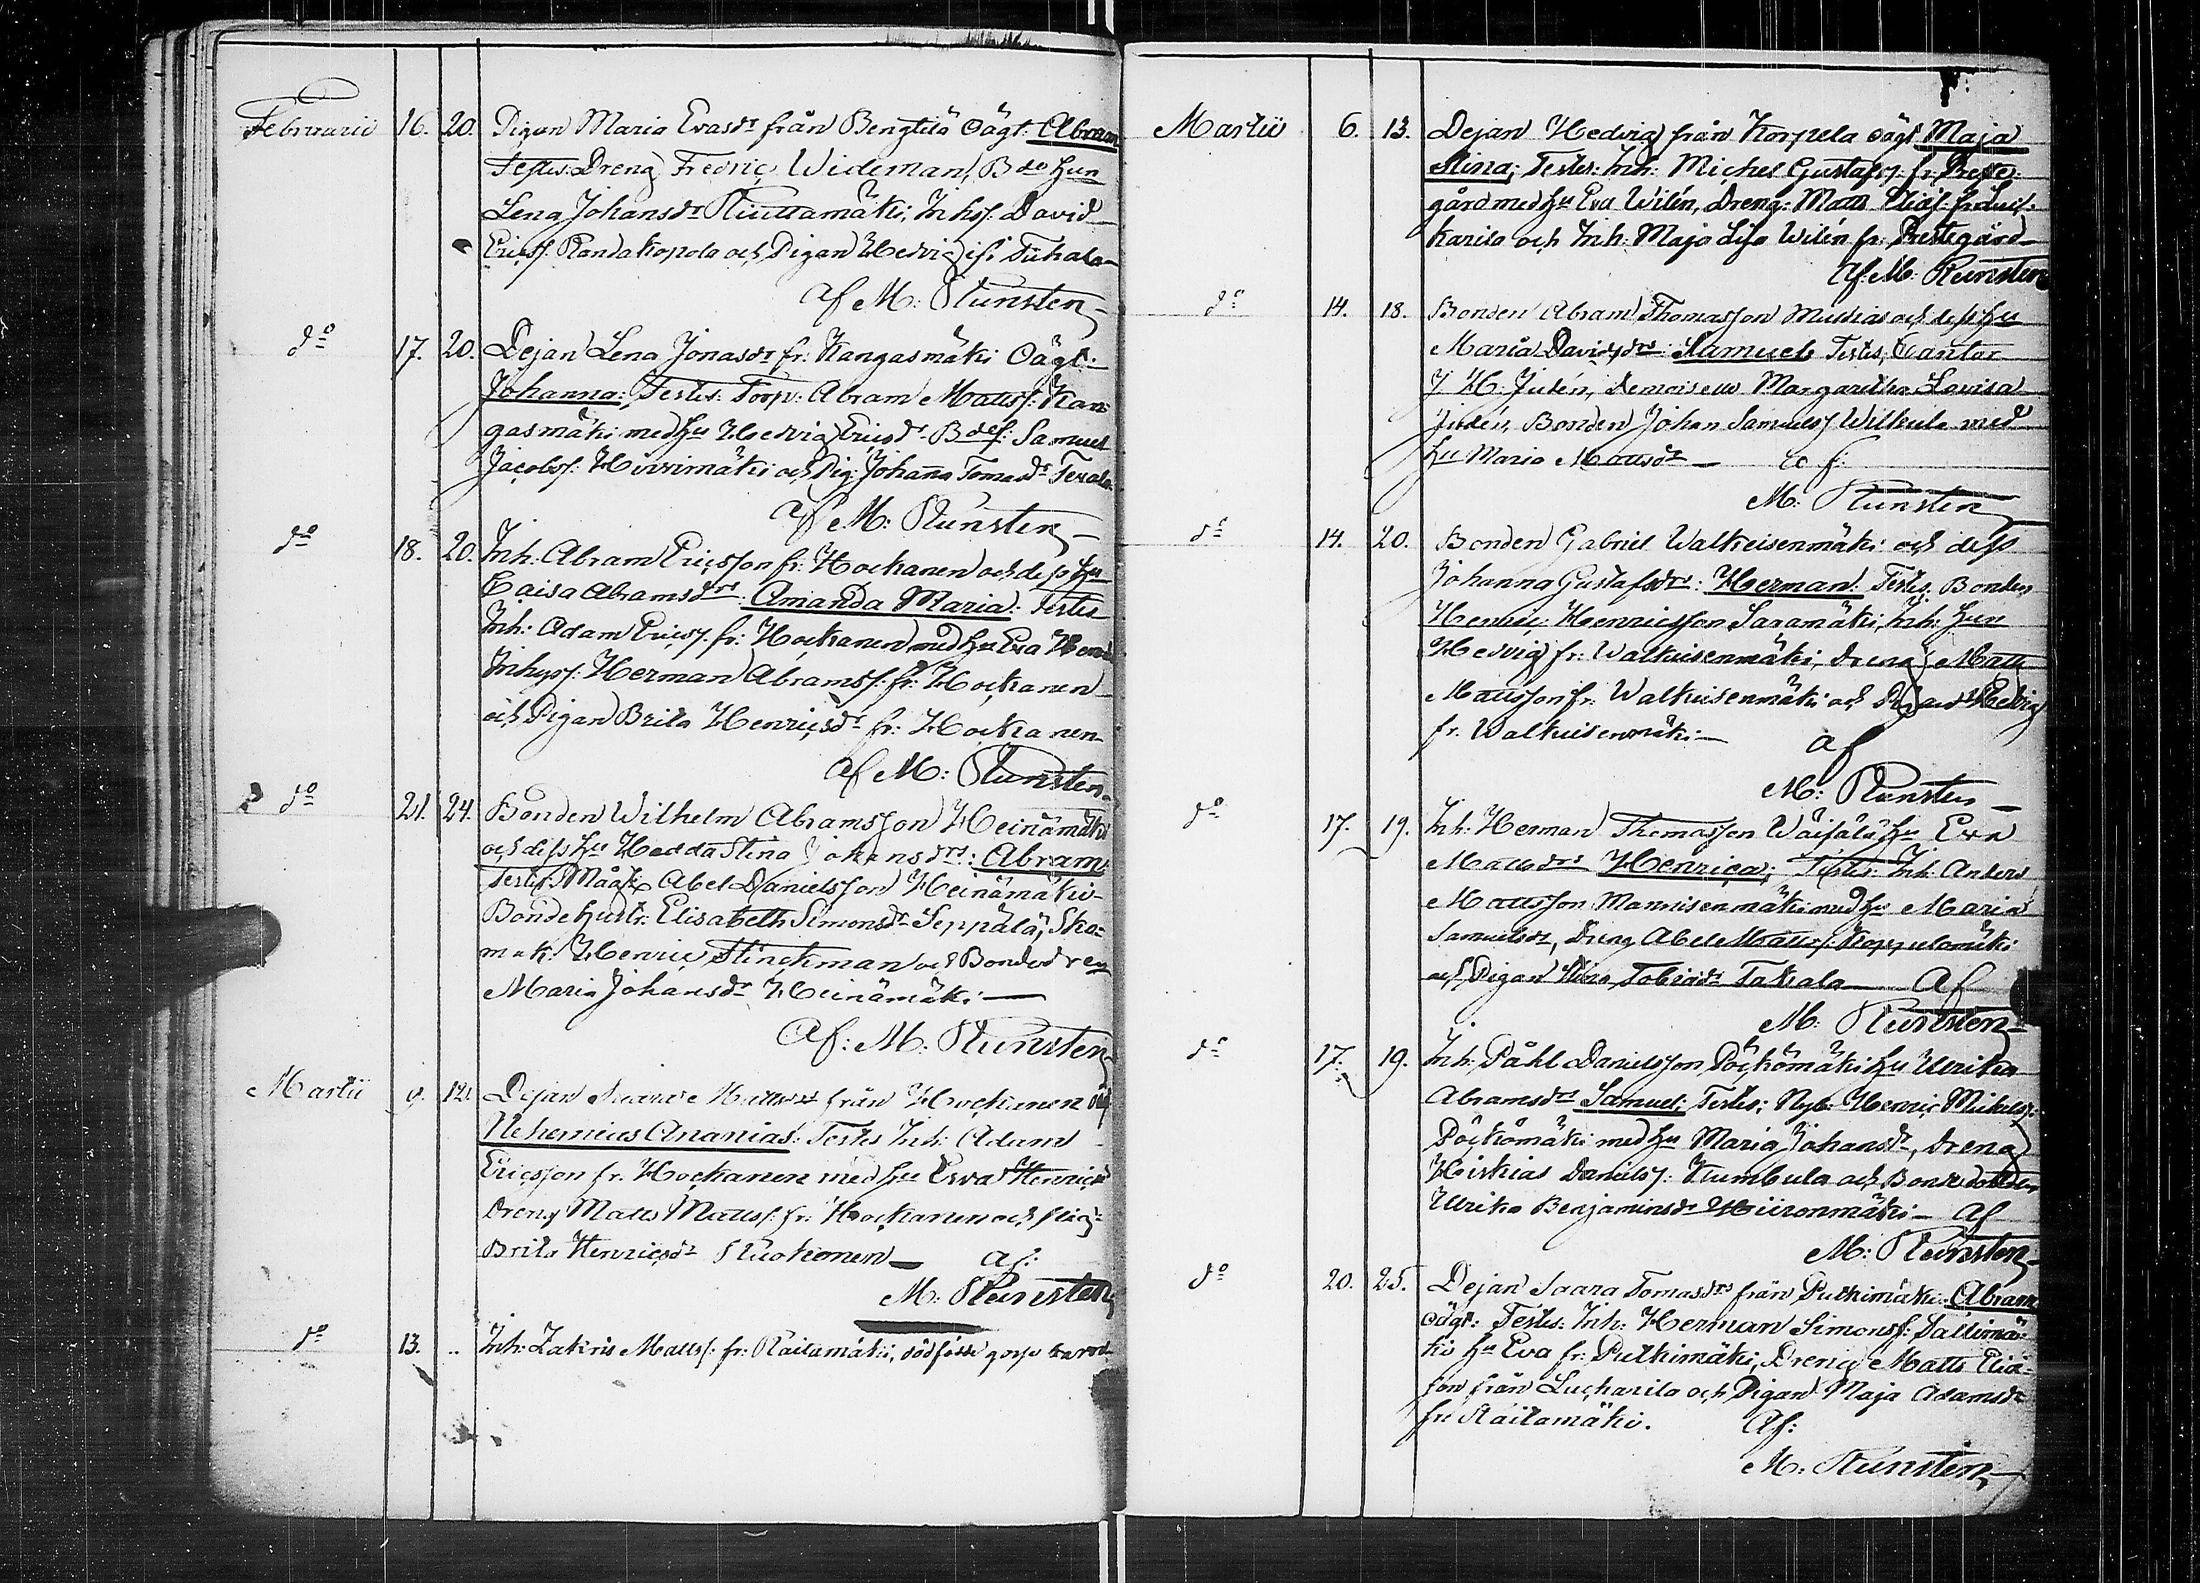 Februarii 16. 20. Pigan Maria Evasdr från Bengtilä oägt. Abram
Testes: Dreng Fredric Wideman, Bde hun
Lena Johansdr Kiuttamäki, Inhs. David
Ericss. Randakopola och Pigan Hedvig ifr Tuhala
af M: Runsten
do 17. 20. Dejan Lena Jonasdr fr: Kangasmäki Oägt.
Johanna: Testes: Torp: Abram Mattss: Kan-
gasmäki med hu Hedvig Ericsdr Bdes: Samuel
Jacobss. Hirvimäki och Pig: Johanna Tomasdr
af M: Runsten
do 18. 20. Inh: Abram Ericsson fr: Hockanen och dess hu
Caisa Abramsdrs: Amanda Maria: Testes
Inh: Adam Ericss. fr: Hockanen med hu Eva
Inhyss: Herman Abramss: fr: Hockanen
och Pigan Brita Henricsdr fr: Hockanen
af M: Runsten
do 21. 24. Bonden Wilhelm Abramsson Heinämäki
och dess hu Hedda Stina Johansdrs: Abram
Testes: Abel Danielsson Heinämäki
Bonde hustr: Elisabeth Simonsdr Seppälä, Sko-
mak: Henric Flinckman och
Maria Johansdr Heinämäki
Af: M: Runsten
Martii 9. 12. Dejan från Hockanen
Nehemias Ananias: Testes Inh: Adam
Ericsson fr. Hockanen med hu Eva Henricsd
Dreng Matts Mattss: fr: Hockanen och
Brita Henricsdr af:
M: Runsten
do 13. .. Inh: Zakris Mattss: fr: Raitamäki, dödfödd gosse
Martii 6. 13. Dejan Hedvig från Korpela oägt Maja
Stina; Testes: Inh: Michel Gustafss: fr: Preste-
gård med hu Eva Wilén, Dreng: Matts
karila och Inh: Maja Lisa Wilén fr: Prestegård
Af: M: Runsten
do 14. 18. Bonden Abram Thomasson och dess hu
Maria Davidsdrs: Samuel: Testes, Cantor
J. H. Judén, Demoiselle Margaretha Lovisa
Judén, Bonden Johan Samuelss Wilkula med
hu Maria Mattsdr af:
M: Runsten
do 14. 20. Bonden Gabriel Walkeisenmäki och dess
Johanna Gustafsdrs: Herman: Testes: Bonden
Henric Henricsson Saramäki, Inh: hun
Hedvig fr: Walkeisenmäki, Dreng Matts
Mattsson fr: Walkeisenmäki och Pigan Hedvig
fr. Walkeisenmäki af
M: Runsten
do 17. 19. Inh: Herman Thomasson Wäisälä hu Eva
Mattsdrs Henrica; Testes: Inh: Anders
Mattsson Mannisenmäki med hu Maria
Samuelsdr, Dreng Abel Mattss:
och Pigan Stina Tobiasdr Takala Af
M: Runsten
do 17. 19. Inh: Påhl Danielsson Pöckömäki hu Ulrika
Abramsdrs Samuel; Testes; Nyb: Henric Mickelss:
Pöckömäki med hu Maria Johansdr, Dreng
Heiskias Danielss: Kumbula och Bondedottern
Ulrika Benjaminsdr Hiironmäki Af
M: Runsten
do 20. 25. Dejan Saara Tomasdrs från Pulkimäki Abram
oägt: Testes: Inh: Herman Simonss:
ki hu Eva fr: Pulkimäki, Dreng Matts Elia-
son från Luckarila och Pigan Maja Adamsdr
fr: Raitamäki. Af:
M: Runsten